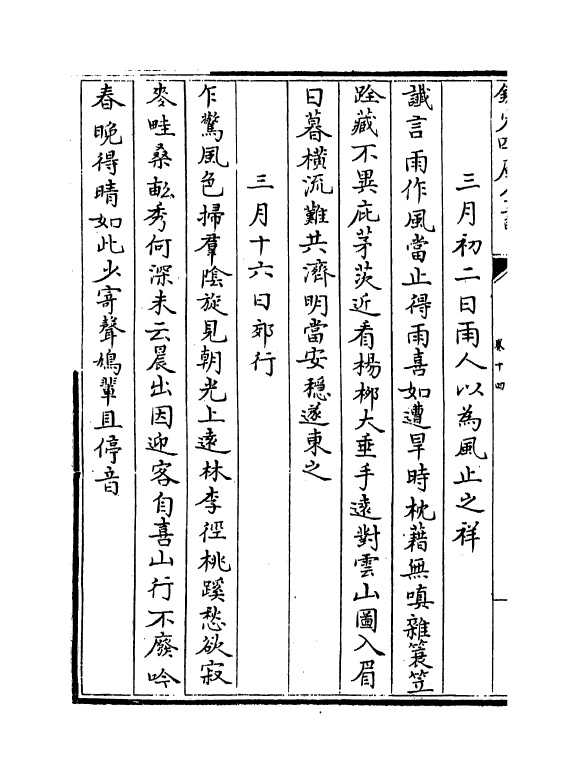 卷十四
三月初二日雨人以為風止之祥
讖言雨作風當止得雨喜如遭旱時枕藉無嗔雜簑笠
跧藏不異庇茅茨近看楊栁大垂手遠對雲山圖入眉
日暮橫流難共濟明當安穏遂東之
三月十六日郊行
乍驚風色掃羣陰旋見朝光上遠林李徑桃蹊愁欲寂
麥畦桑畝秀何深未云晨出因迎客自喜山行不廢吟
春晚得晴如此少寄聲鳩輩且停音